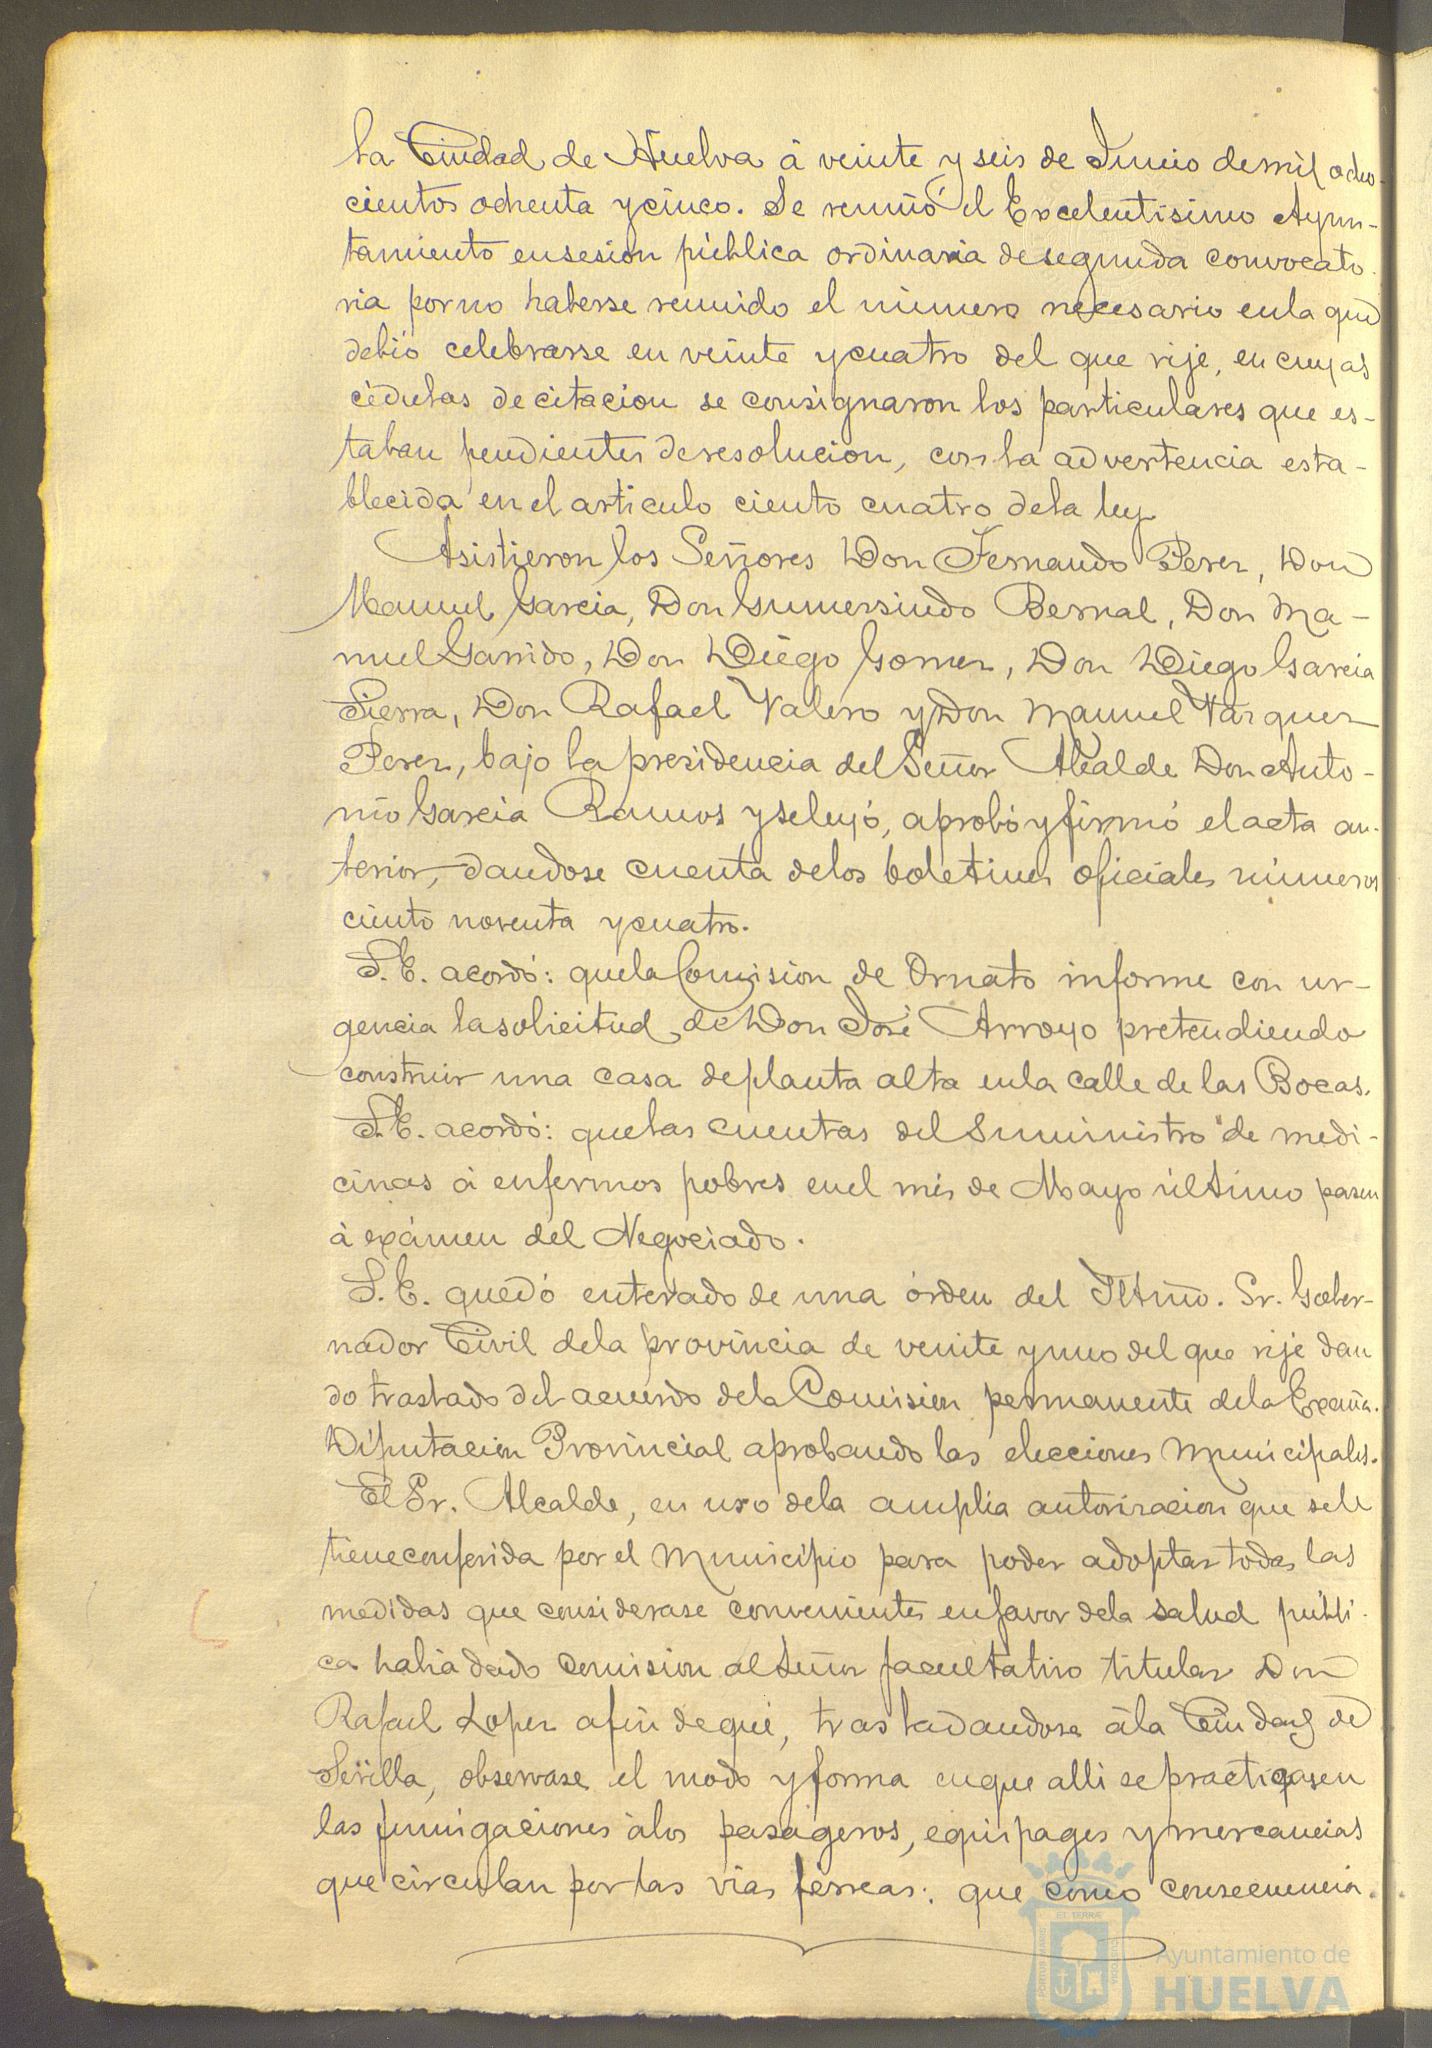 la Ciudad de Huelva á veinte y seis de Junio de mil ocho-
cientos ochenta y cinco. Se reunió el Excelentisimo Ayun-
tamiento en sesion pública ordinaria de segunda convocato-
ria por no haberse reunido el número necesario en la que
debió celebrarse en veinte y cuatro del que rije, en cuyas
cédulas de citacion se consignaron los particulares que es-
taban pendientes de resolucion, con la advertencia esta-
blecida en el articulo ciento cuatro de la ley
Asistieron los Señores Don Fernando Perez, Don
Manuel Garcia, Don Gumersindo Bernal, Don Ma-
nuel Garrido, Don Diego Gomez, Don Diego Garcia
Sierra, Don Rafael Valero y Don Manuel Vazquez
Perez, bajo la presidencia del Señor Alcalde Don Anto-
nio Garcia Ramos y se leyó, aprobó y firmó el acta an-
terior, dandose cuenta de los boletines oficiales números
ciento noventa y cuatro.
S. E. acordó: que la Comision de Ornato informe con ur-
gencia la solicitud de Don José Arroyo pretendiendo
construir una casa de planta alta en la calle de las Bocas.
S. E. acordó: que las cuentas del Suministro de medi-
cinas á enfermos pobres en el mes de Mayo último pasen
á exámen del Negociado.
S. E. quedó enterado de una órden del Iltmo. Sr. Gober-
nador Civil de la provincia de veinte y uno del que rije dan
do traslado del acuerdo de la Comision permanente de la Excma.
Diputacion Provincial aprobando las elecciones Municipales.
El Sr. Alcalde, en uso de la amplia autorizacion que se le
tiene conferida por el Municipio para poder adoptar todas las
medidas que considerase convenientes en favor de la salud públi-
ca habia dado comision al Señor facultativo titular Don
Rafael Lopez a fin de que, trasladandose á la Ciudad de
Sevilla, observase el modo y forma en que alli se practiquasen
las fumigaciones á los pasageros, equipages y mercancias
que circulan por las vias férreas: que como consecuencia
Ayuntamiento de
HUELVA